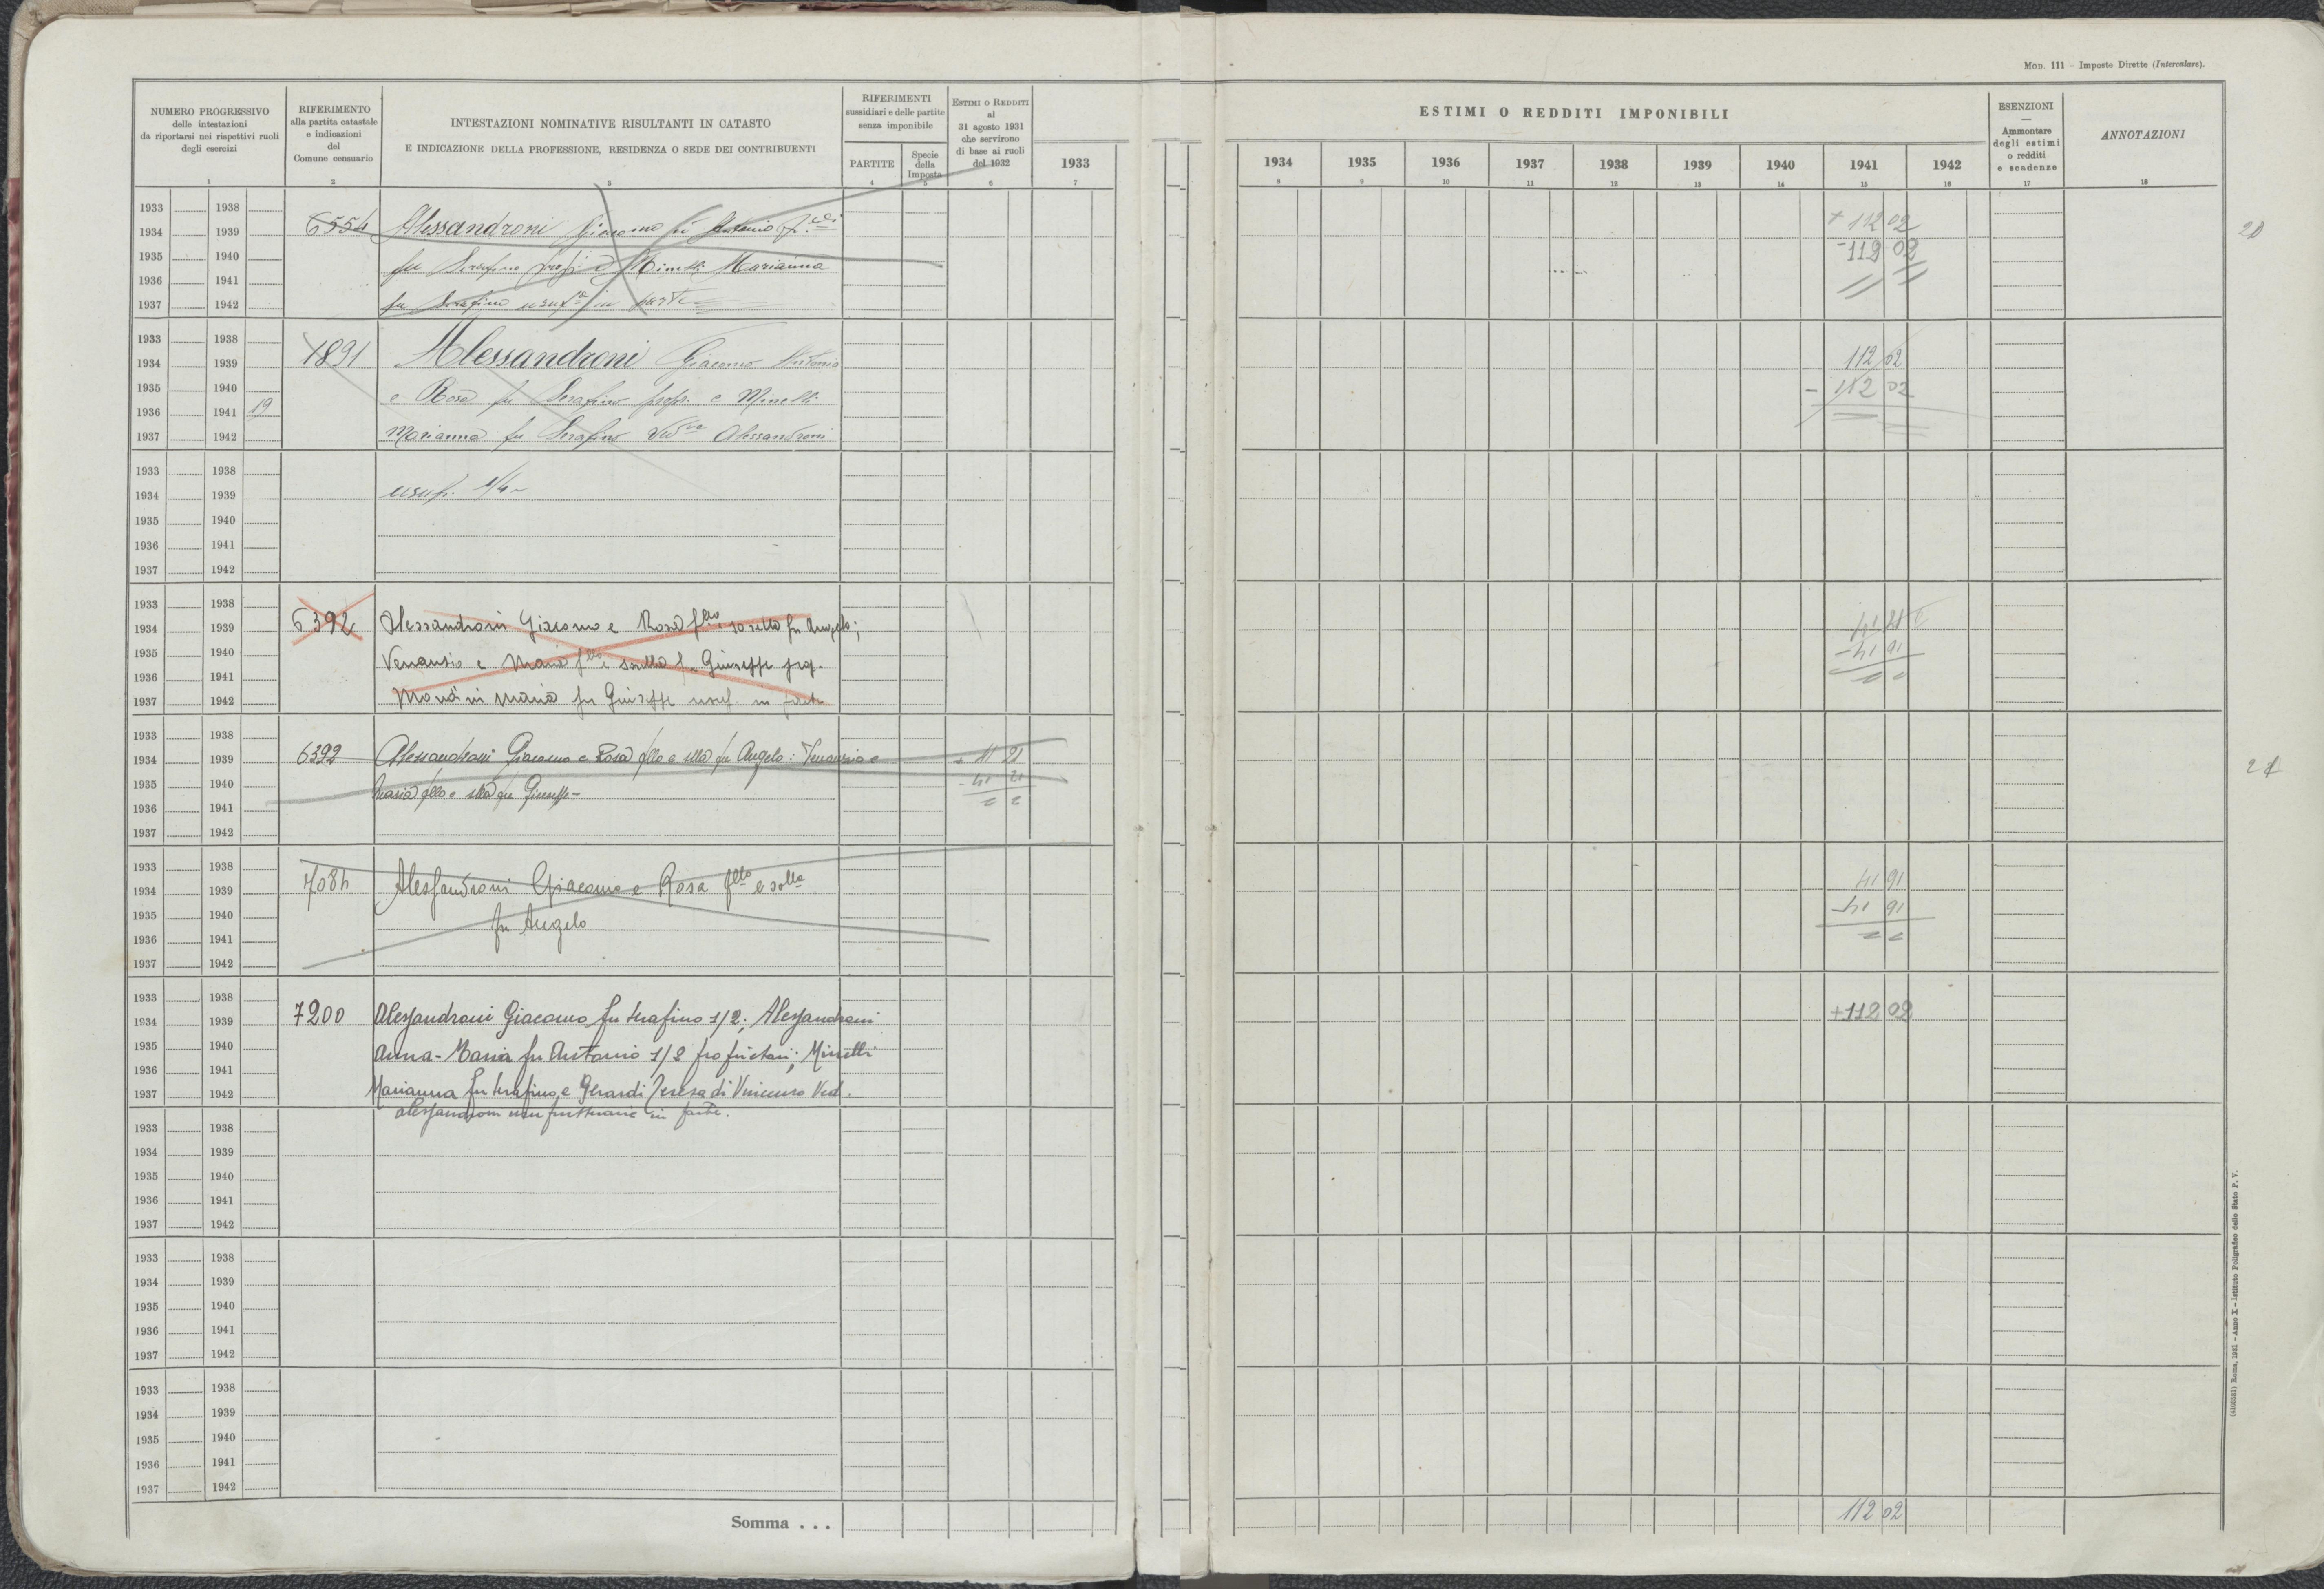 MOD. 111 – Imposte Dirette (Intercalare).
NUMERO PROGRESSIVO
delle intestazioni
da riportarsi nei rispettivi ruoli
degli esercizi
1
RIFERIMENTO
alla partita catastale
e indicazioni
del
Comune censuario
2
INTESTAZIONI NOMINATIVE RISULTANTI IN CATASTO
E INDICAZIONE DELLA PROFESSIONE, RESIDENZA O SEDE DEI CONTRIBUENTI
3
RIFERIMENTI
sussidiari e delle partite
senza imponibile
PARTITE
4
Specie
della
Imposta
5
ESTIMI O REDDITI
al
31 agosto 1931
che servirono
di base ai ruoli
del 1932
6
1933
7
ESTIMI O REDDITI IMPONIBILI
1934 1935 1936 1937 1938 1939 1940 1941 1942
8 9 10 11 12 13 14 15 16
ESENZIONI
—
Ammontare
degli estimi
o redditi
e scadenze
17
ANNOTAZIONI
18
1933 1938
1934 1939 6554 Alessandroni Giacomo fu Antonio + 112 02
1935 1940 fu Serafino propr e Minelli Marianna - 112 02
1936 1941
1937 1942 fu Serafino usuf in parte
1933 1938
1934 1939 1891 Alessandroni Giacomo Antonio 112 02
1935 1940 e Rosa fu Serafino propr. e Minelli - 112 02
1936 1941 19
1937 1942 Marianna fu Serafino Ved.va Alessandroni
1933 1938
1934 1939 usuf. 1/4
1935 1940
1936 1941
1937 1942
1933 1938
1934 1939 6392 Alessandroni Giacomo e Rosa f.llo sorella fu Angelo;
1935 1940 Venanzio e Maria f.llo e sorella fu Giuseppe prop. - 41 91
1936 1941
1937 1942 Maria fu Giuseppe usuf. in parte
1933 1938
1934 1939 6392 Alessandroni Giacomo e Rosa f.llo e s.lla fu Angelo: Venanzio e
1935 1940 Maria f.llo e s.lla fu Giuseppe -
1936 1941
1937 1942
1933 1938
1934 1939 7084 Alessandroni Giacomo e Rosa f.llo e s.lla 41 91
1935 1940 fu Angelo - 41 91
1936 1941
1937 1942
1933 1938
1934 1939 7200 Alessandroni Giacomo fu Serafino 1/2; Alessandroni +112 02
1935 1940 Anna-Maria fu Antonio 1/2 proprietari; Minelli
1936 1941
1937 1942 Marianna fu Serafino, e Gerardi Teresa di Vincenzo Ved.
Alessandroni usufruttuarie in parte.
1933 1938
1934 1939
1935 1940
1936 1941
1937 1942
1933 1938
1934 1939
1935 1940
1936 1941
1937 1942
1933 1938
1934 1939
1935 1940
1936 1941
1937 1942
Somma . . . 112 02
(4102531) Roma, 1931 – Anno X – Istituto Poligrafico dello Stato P. V.